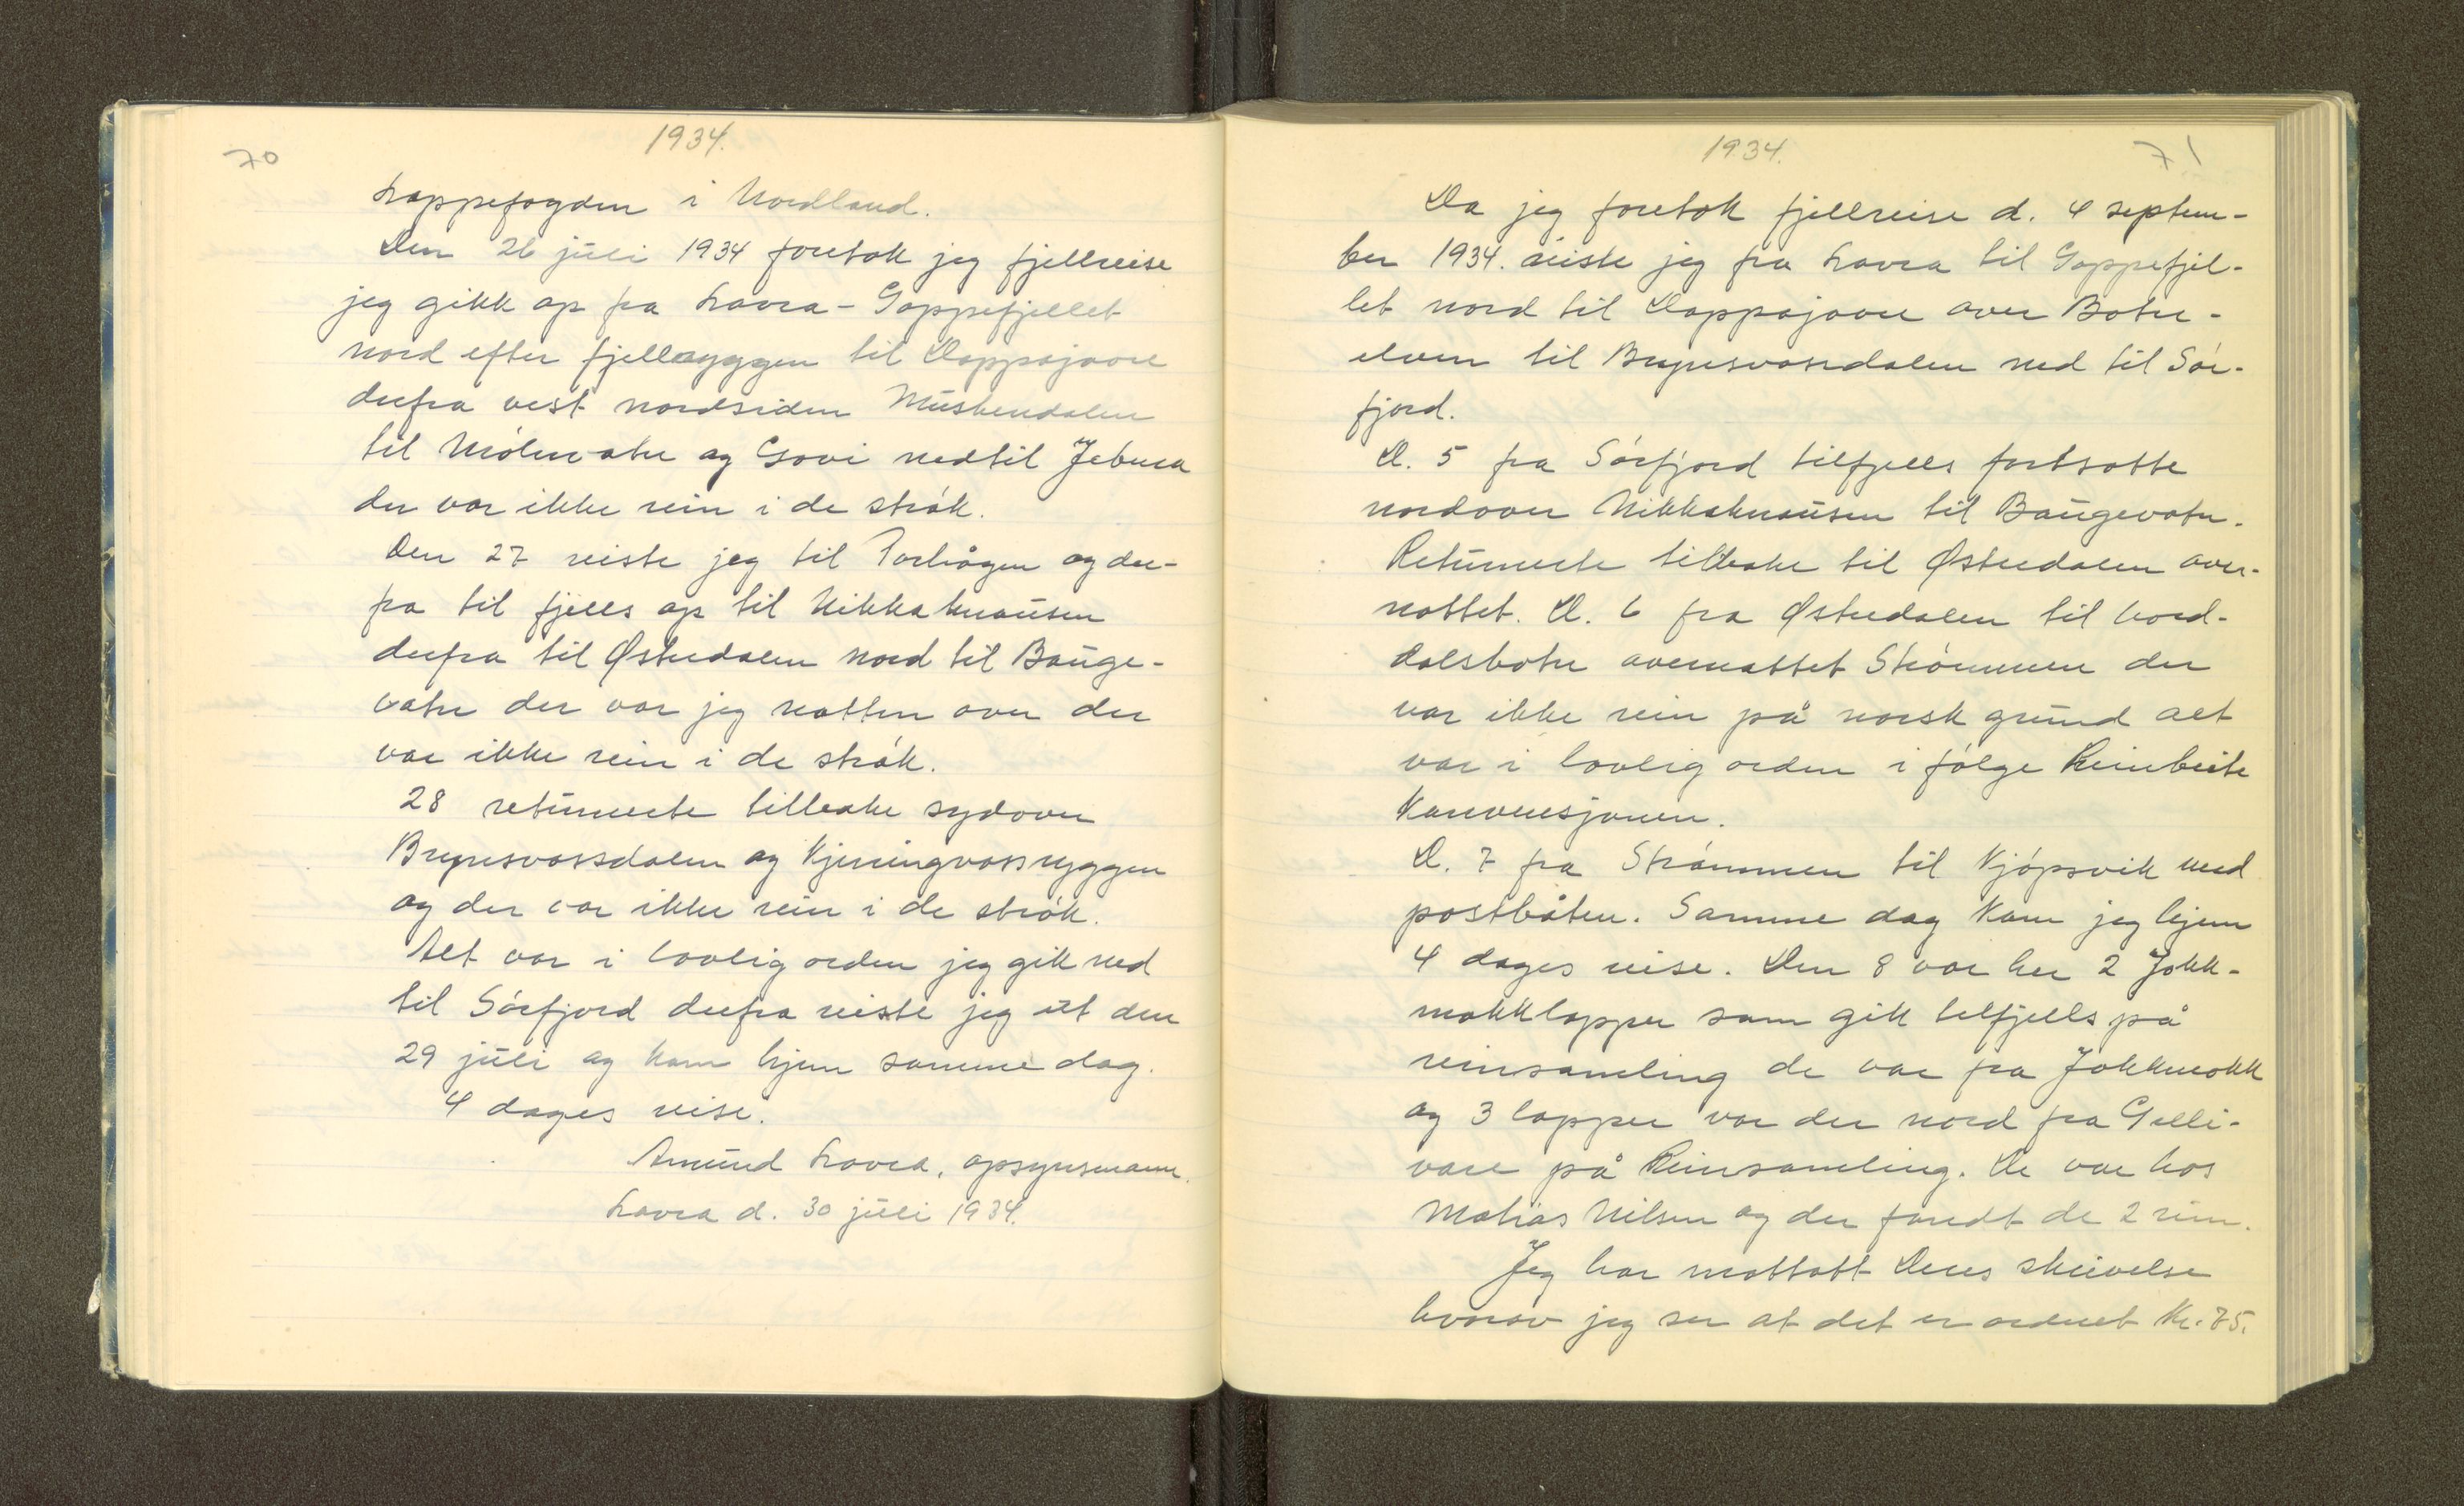 70
1934.
Lappefogden i Nordland.
Den 26 juli 1934 foretok jeg fjellreise
jeg gikk op fra Lavra - Goppefjellet
nord efter fjellryggen til Doppajavre
derfra vest nordsiden Muskendalen
til Mólnvatn og Govi nedtil Jebura
der var ikke rein i de strók.
Den 27 reiste jeg til Torhågen og der-
fra til fjells op til Nikkaknausen
derfra til Østerdalen nord til Bauge-
vatn der var jeg natten over der
var ikke rein i de strók.
28 returnerte tilbake sydover
Brynesvassdalen og Kjerringvassryggen
og der var ikke rein i de strók.
Alt var i lovlig orden jeg gik ned
til Sórfjord derfra reiste jeg ut den
29 juli og kom hjem samme dag.
4 dages reise.
Amund Lavra, opsynsmann.
Lavra d. 30 juli 1934.
1934.
71
Da jeg foretok fjellreise d. 4 septem-
ber 1934. reiste jeg fra Lavra til Goppefjel-
let nord til Doppajavre over Botn-
elven til Brynesvassdalen ned til Sór-
fjord.
D. 5 fra Sórfjord tilfjells fortsatte
nordover Nikkaknausen til Baugevatn.
Returnerte tilbake til Østerdalen over-
nattet. D. 6 fra Østerdalen til Nord-
dalsbotn overnattet Strómmen der
var ikke rein på norsk grund alt
var i lovlig orden i fólge Reinbeite
Konvensjonen.
D. 7 fra Strómmen til Kjópsvik med
postbåten. Samme dag kom jeg hjem
4 dages reise. Den 8 var her 2 Jokk-
mokklapper som gik tilfjells på
reinsamling de var fra Jokkmokk
og 3 lapper var der nord fra Gelli-
vare på Reinsamling. De var hos
Matias Nilsen og der fandt de 2 rein.
Jeg har mottatt Deres skrivelse
hvorav jeg ser at det er ordnet Kr. 75.